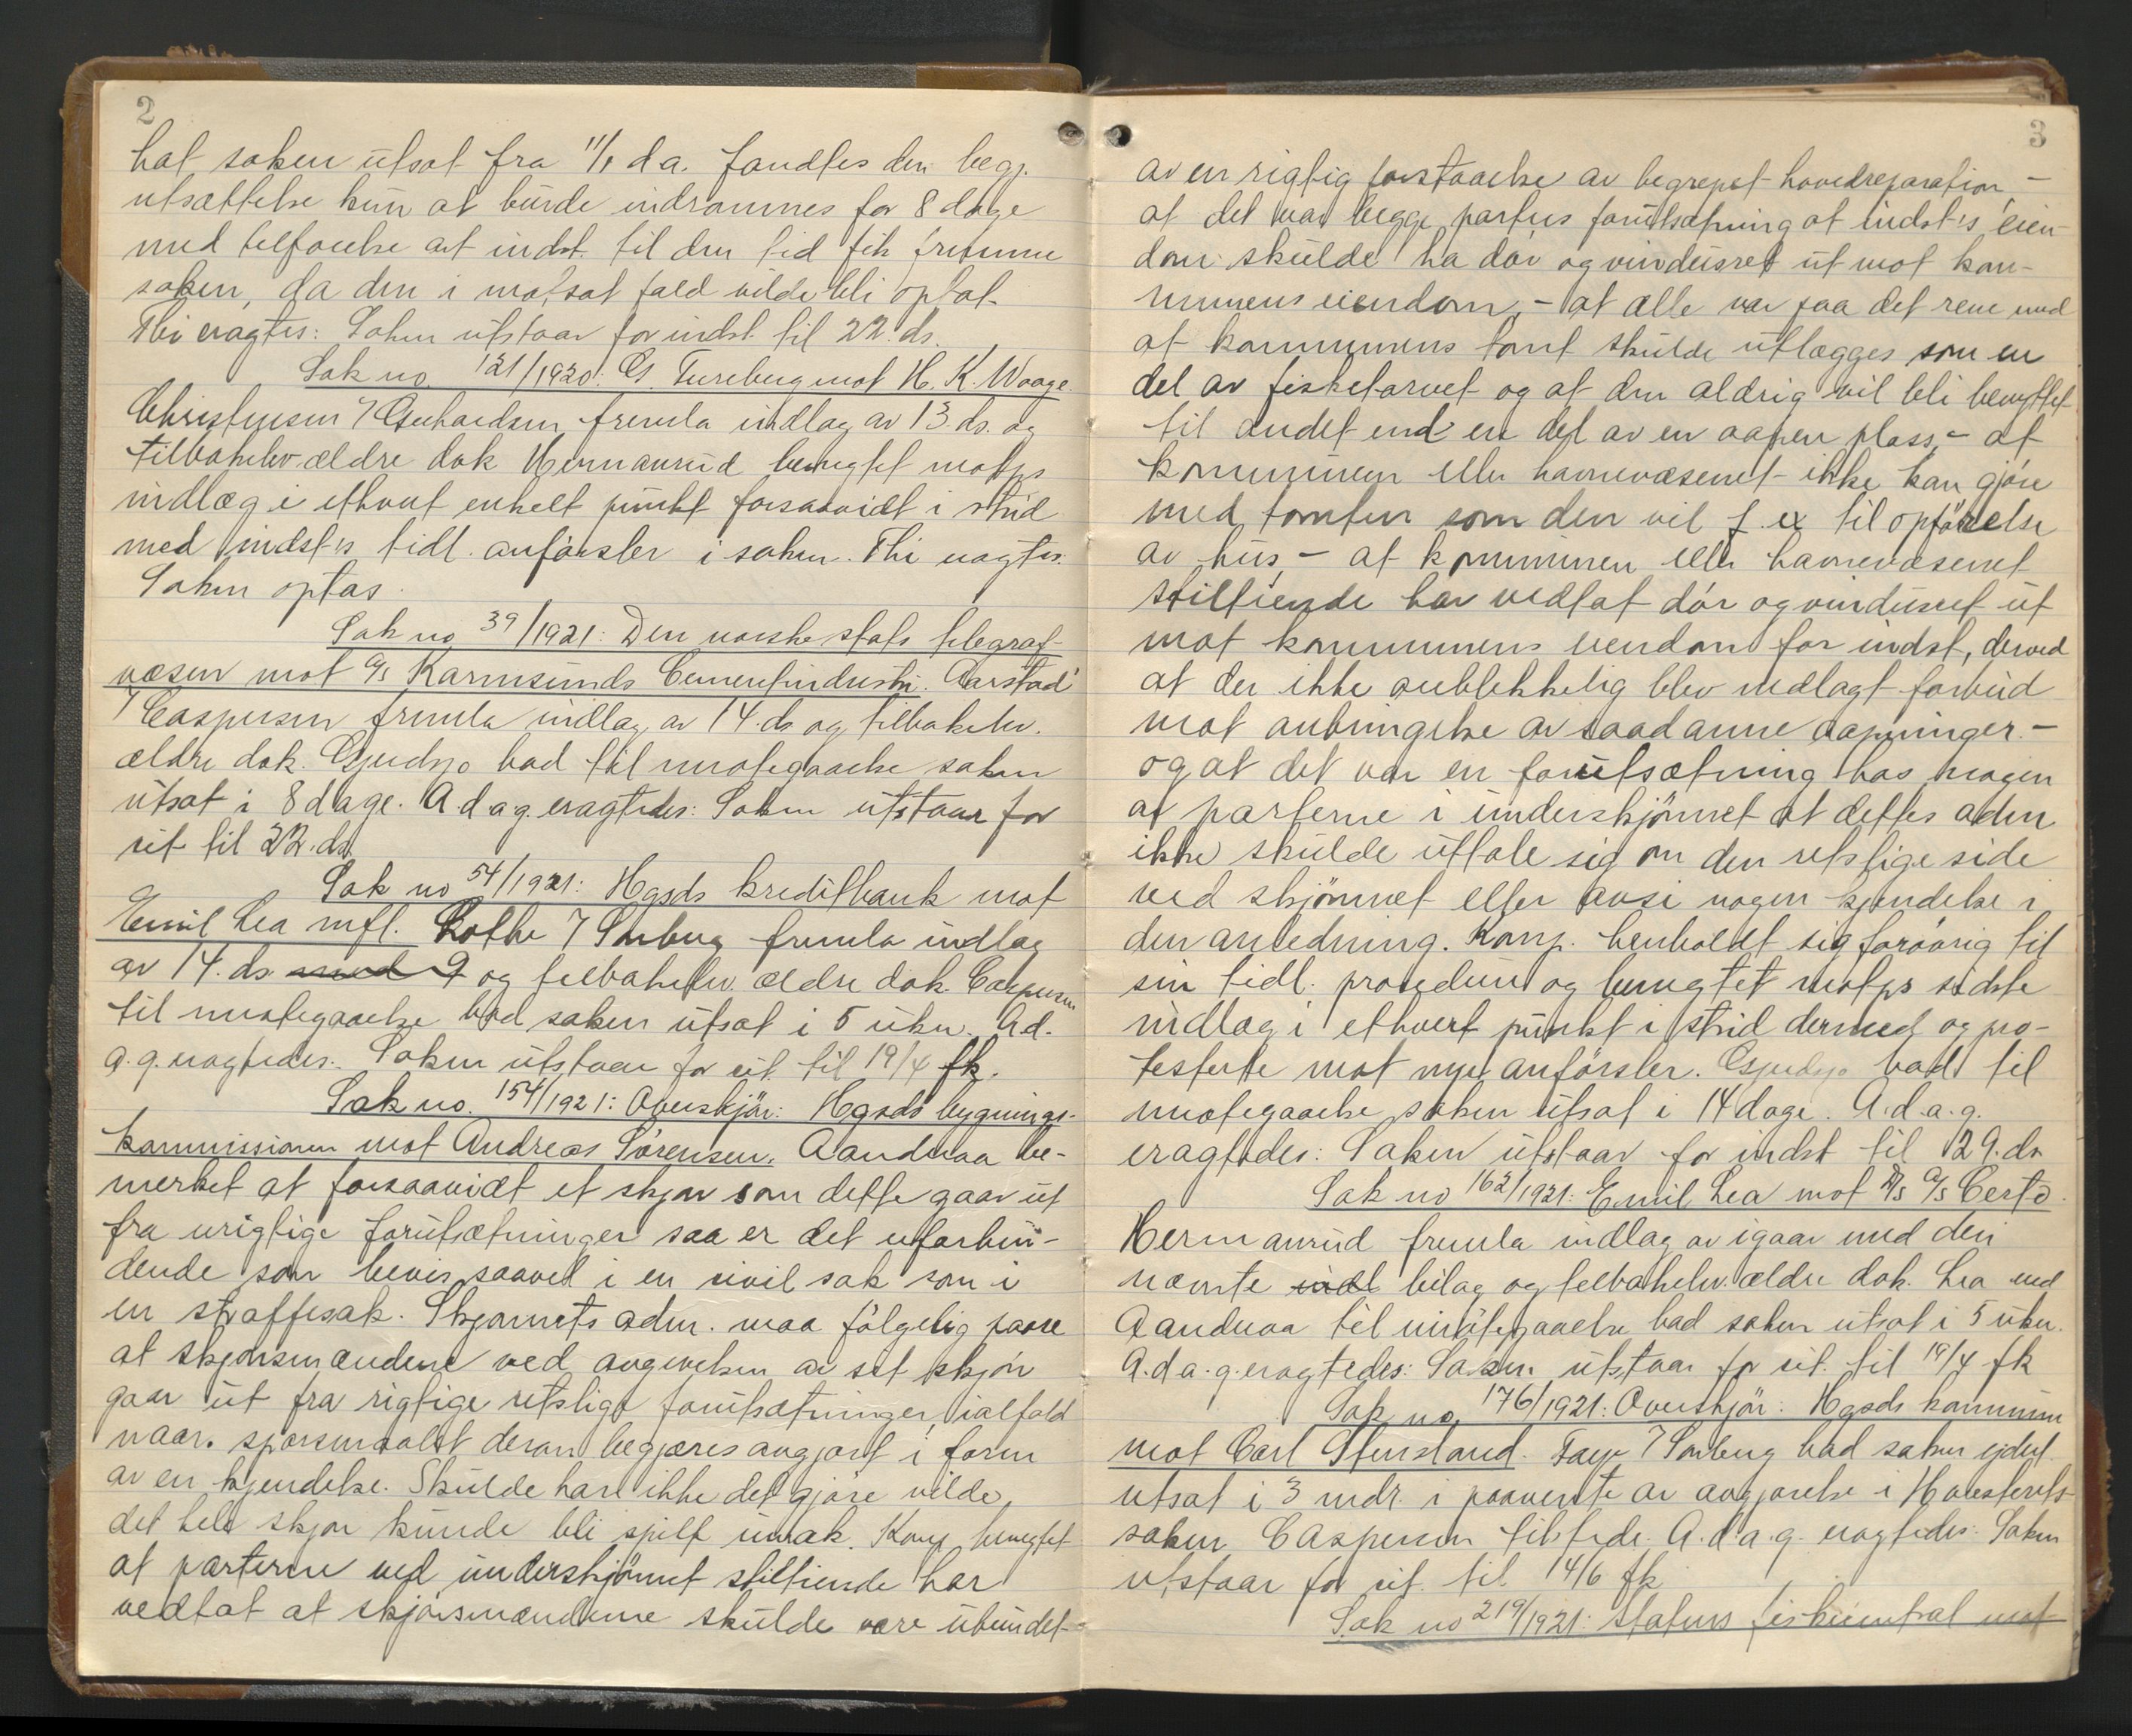 2
hat saken utsat fra 11/1 d a. fandtes den begj.
utsættelse kun at burde indrømmes for 8 dage
med tilføielse at indst. til den tid fik fremme
saken, da den i motsat fald vilde bli optat.
Thi eragtes: Saken utstaar for indst. til 22. ds.
Sak no. 121/1920: G. Tureberg mot H. K. Waage.
Christensen / Gerhardsen fremla indlæg av 13. ds. og
tilbakelev ældre dok Hermansrud benegtet motps
indlæg i ethvert enkelt punkt forsaavidt i strid
med indst's tidl. anførsler i saken. Thi eragtes:
Saken optas.
Sak no 39/1921: Den norske stats telegraf-
væsen mot A/S Karmsunds Cementindustri. Aarstad
/ Caspersen fremla indlæg av 14. ds og tilbakelev.
ældre dok. Gjerdsjo bad til imøtegaaelse saken
utsat i 8 dage. A. d. a g. eragtedes: Saken utstaar for
cit til 22. ds.
Sak no 54/1921: Hgsds kreditbank mot
Emil Lea mfl. Lothe / Sørberg fremla indlæg
av 14. ds. og tilbakelev. ældre dok. Caspersen
til imøtegaaelse bad saken utsat i 5 uker. A d.
a. g. eragtedes: Saken utstaar for cit. til 19/4 fk.
Sak no. 154/1921: Overskjøn: Hgsds bygnings-
kommissionen mot Andreas Sørensen. Aandnaa be-
merket at forsaavidt et skjøn som dette gaar ut
fra urigtige forutsætninger saa er det uforbin-
dende som bevis saavel i en civil sak som i
en straffesak. Skjønnets adm. maa følgelig passe
at skjønsmændene ved avgivelsen av sit skjøn
gaar ut fra rigtige retslige forutsætninger, ialfald
naar spørsmaalet derom begjæres avgjort i form
av en kjendelse. Skulde han ikke det gjøre vilde
det hele skjøn kunde bli spilt umak. Komp benegtet
at parterne ved underskjønnet stiltiende har
vedtat at skjønsmændene skulde være ubundet
3
av en rigtig forstaaelse av begrepet hovedreparation, -
at det var begge parters forutsætning at indst's eien-
dom skulde ha dør og vindusret ut mot kom-
munens eiendom, - at alle var paa det rene med
at kommunens tomt skulde utlægges som en
del av fisketorvet og at den aldrig vil bli benyttet
til andet end en del av en aapen plass, - at
kommunen eller havnevæsenet ikke kan gjøre
med tomten som den vil f. ex til opførelse
av hus, - at kommunen eller havnevæsenet
stiltiende har vedtat dør og vindusret ut
mot kommunens eiendom for indst, derved
at der ikke øieblikkelig blev nedlagt forbud
mot anbringelse av saadanne aapninger. -
og at det var en forutsætning hos nogen
av parterne i underskjønnet at dettes adm
ikke skulde uttale sig om den retslige side
ved skjønnet eller avsi nogen kjendelse i
den anledning. Komp. henholdt sig forøvrig til
sin tidl. procedure og benegtet motps sidste
indlæg i ethvert punkt i strid dermed og pro-
testerte mot nye anførsler. Gjerdsjo bad til
imøtegaaelse saken utsat i 14 dage. A. d. a. g.
eragtedes: Saken utstaar for indst til 29. ds
Sak no 162/1921: Emil Lea mot D/S A/S Certo.
Hermansrud fremla indlæg av igaar med deri
nævnte indl bilag og tilbakelev. ældre dok. Lea ved
Aandnaa til imøtegaaelse bad saken utsat i 5 uker.
A. d a. g. eragtedes: Saken utstaar for cit. til 19/4 fk
Sak no 176/1921: Overskjøn: Hgsds kommune
mot Carl Stensland. Faye / Sørberg bad saken
utsat i 3 mdr. i paavente av avgjørelse i Høiesterets-
saken. Caspersen tiltrede. A. d. a. g. eragtedes: Saken
utstaar for cit. til 14/6 fk
Sak no 219/1921: Statens fiskcentral mot